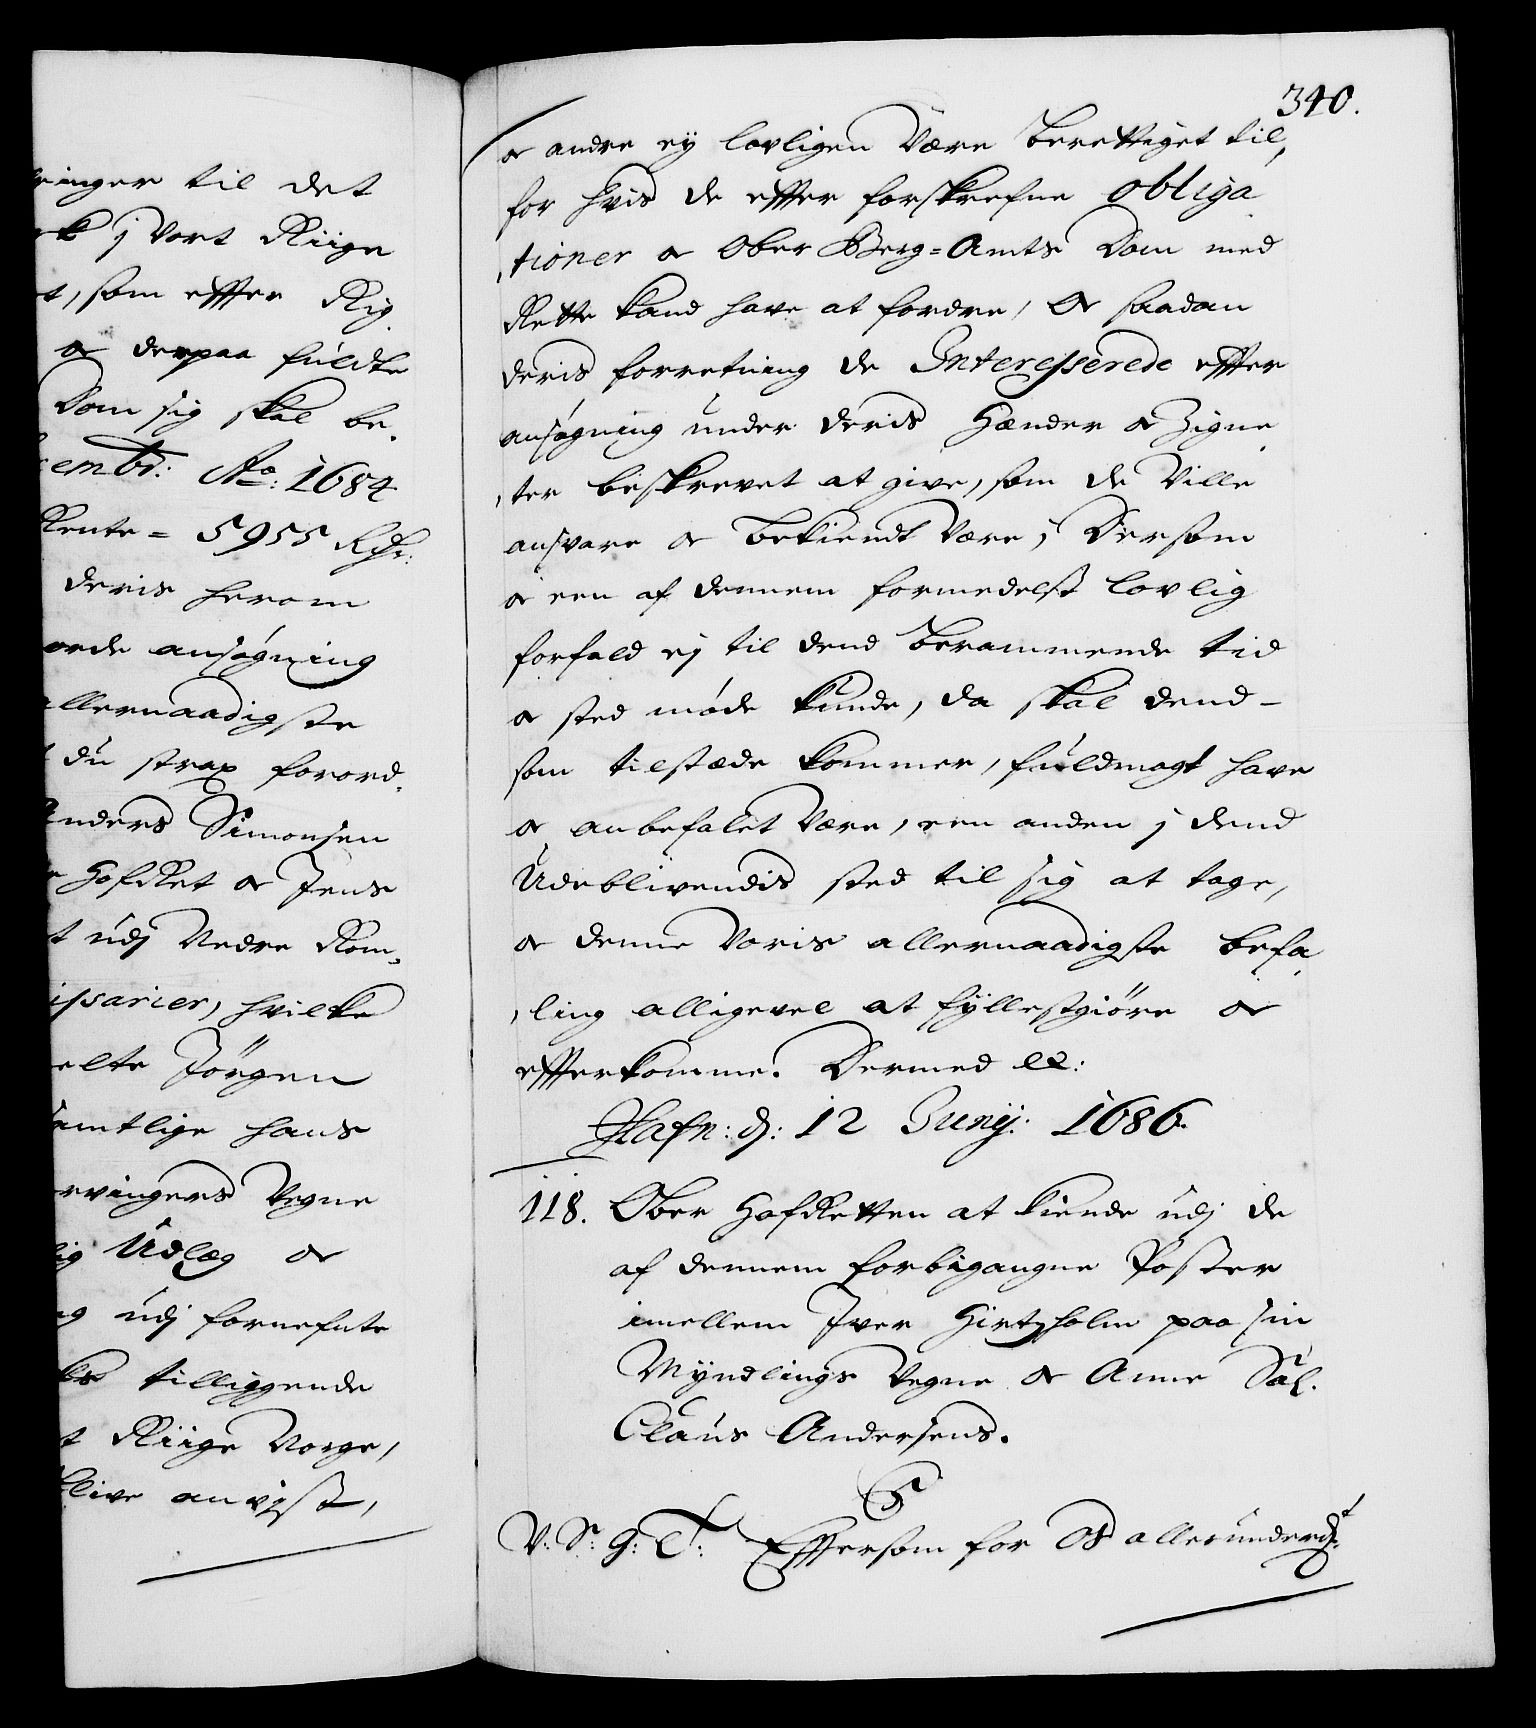 ringer til det
rk j vort Riige
t, som effter Rig
og derpaa fuldte
Dom sig skal be¸
cembr: Ao: 1684
Rente = 5955 Rdr:
deris herom
orde ansøgning
allernaadigste
du strax forord¸
Anders Simonsen
HofRet og Jens
t udj Nedre Rom¸
issarier, hvilke
elte Jörgen
samtlige hans
rvingers Vegne
lig Udlæg og
ng udj fornefnte
ks tilliggende
t Riige Norge,
blive anvjst,
340.
og andre ej lovligen være berettiget til,
for hvis de effter forskrefne obliga
¸tioner og Ober Berg=Amts Dom med
Rette kand have at fordre, Og saadan
deris forretning de Interesserede effter
ansøgning under deris Hænder og Zigne
¸ter beskrevet at give, som de ville
ansvare og bekiendt være; Dersom
og een af dennem formedelst lovlig
forfald ej til dend berammende tid
og sted møde kunde, da skal dend-
som tilstæde kommer, fuldmagt have
og anbefalet være, een anden j dend
Udeblivendis sted til sig at tage,
og denne voris allernaadigste befa
¸ling alligevel at fyllestgiöre og
effterkomme. Dermed etc:
Hafn: d: 12 Junij: 1686.
118. Ober HofRetten at kiende udj de
af dennem forbigangne Poster
imellem Iver Hirtzholm paa sin
Myndlings Vegne og Anne Sal.
Claus Andersens.
C5
V: S: G: T: Efftersom for Os allerunderdt: